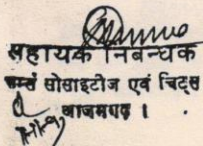 सहायक निबन्धक
फर्म्स सोसाइटीज एवं चिट्स
आजमगढ़ ।